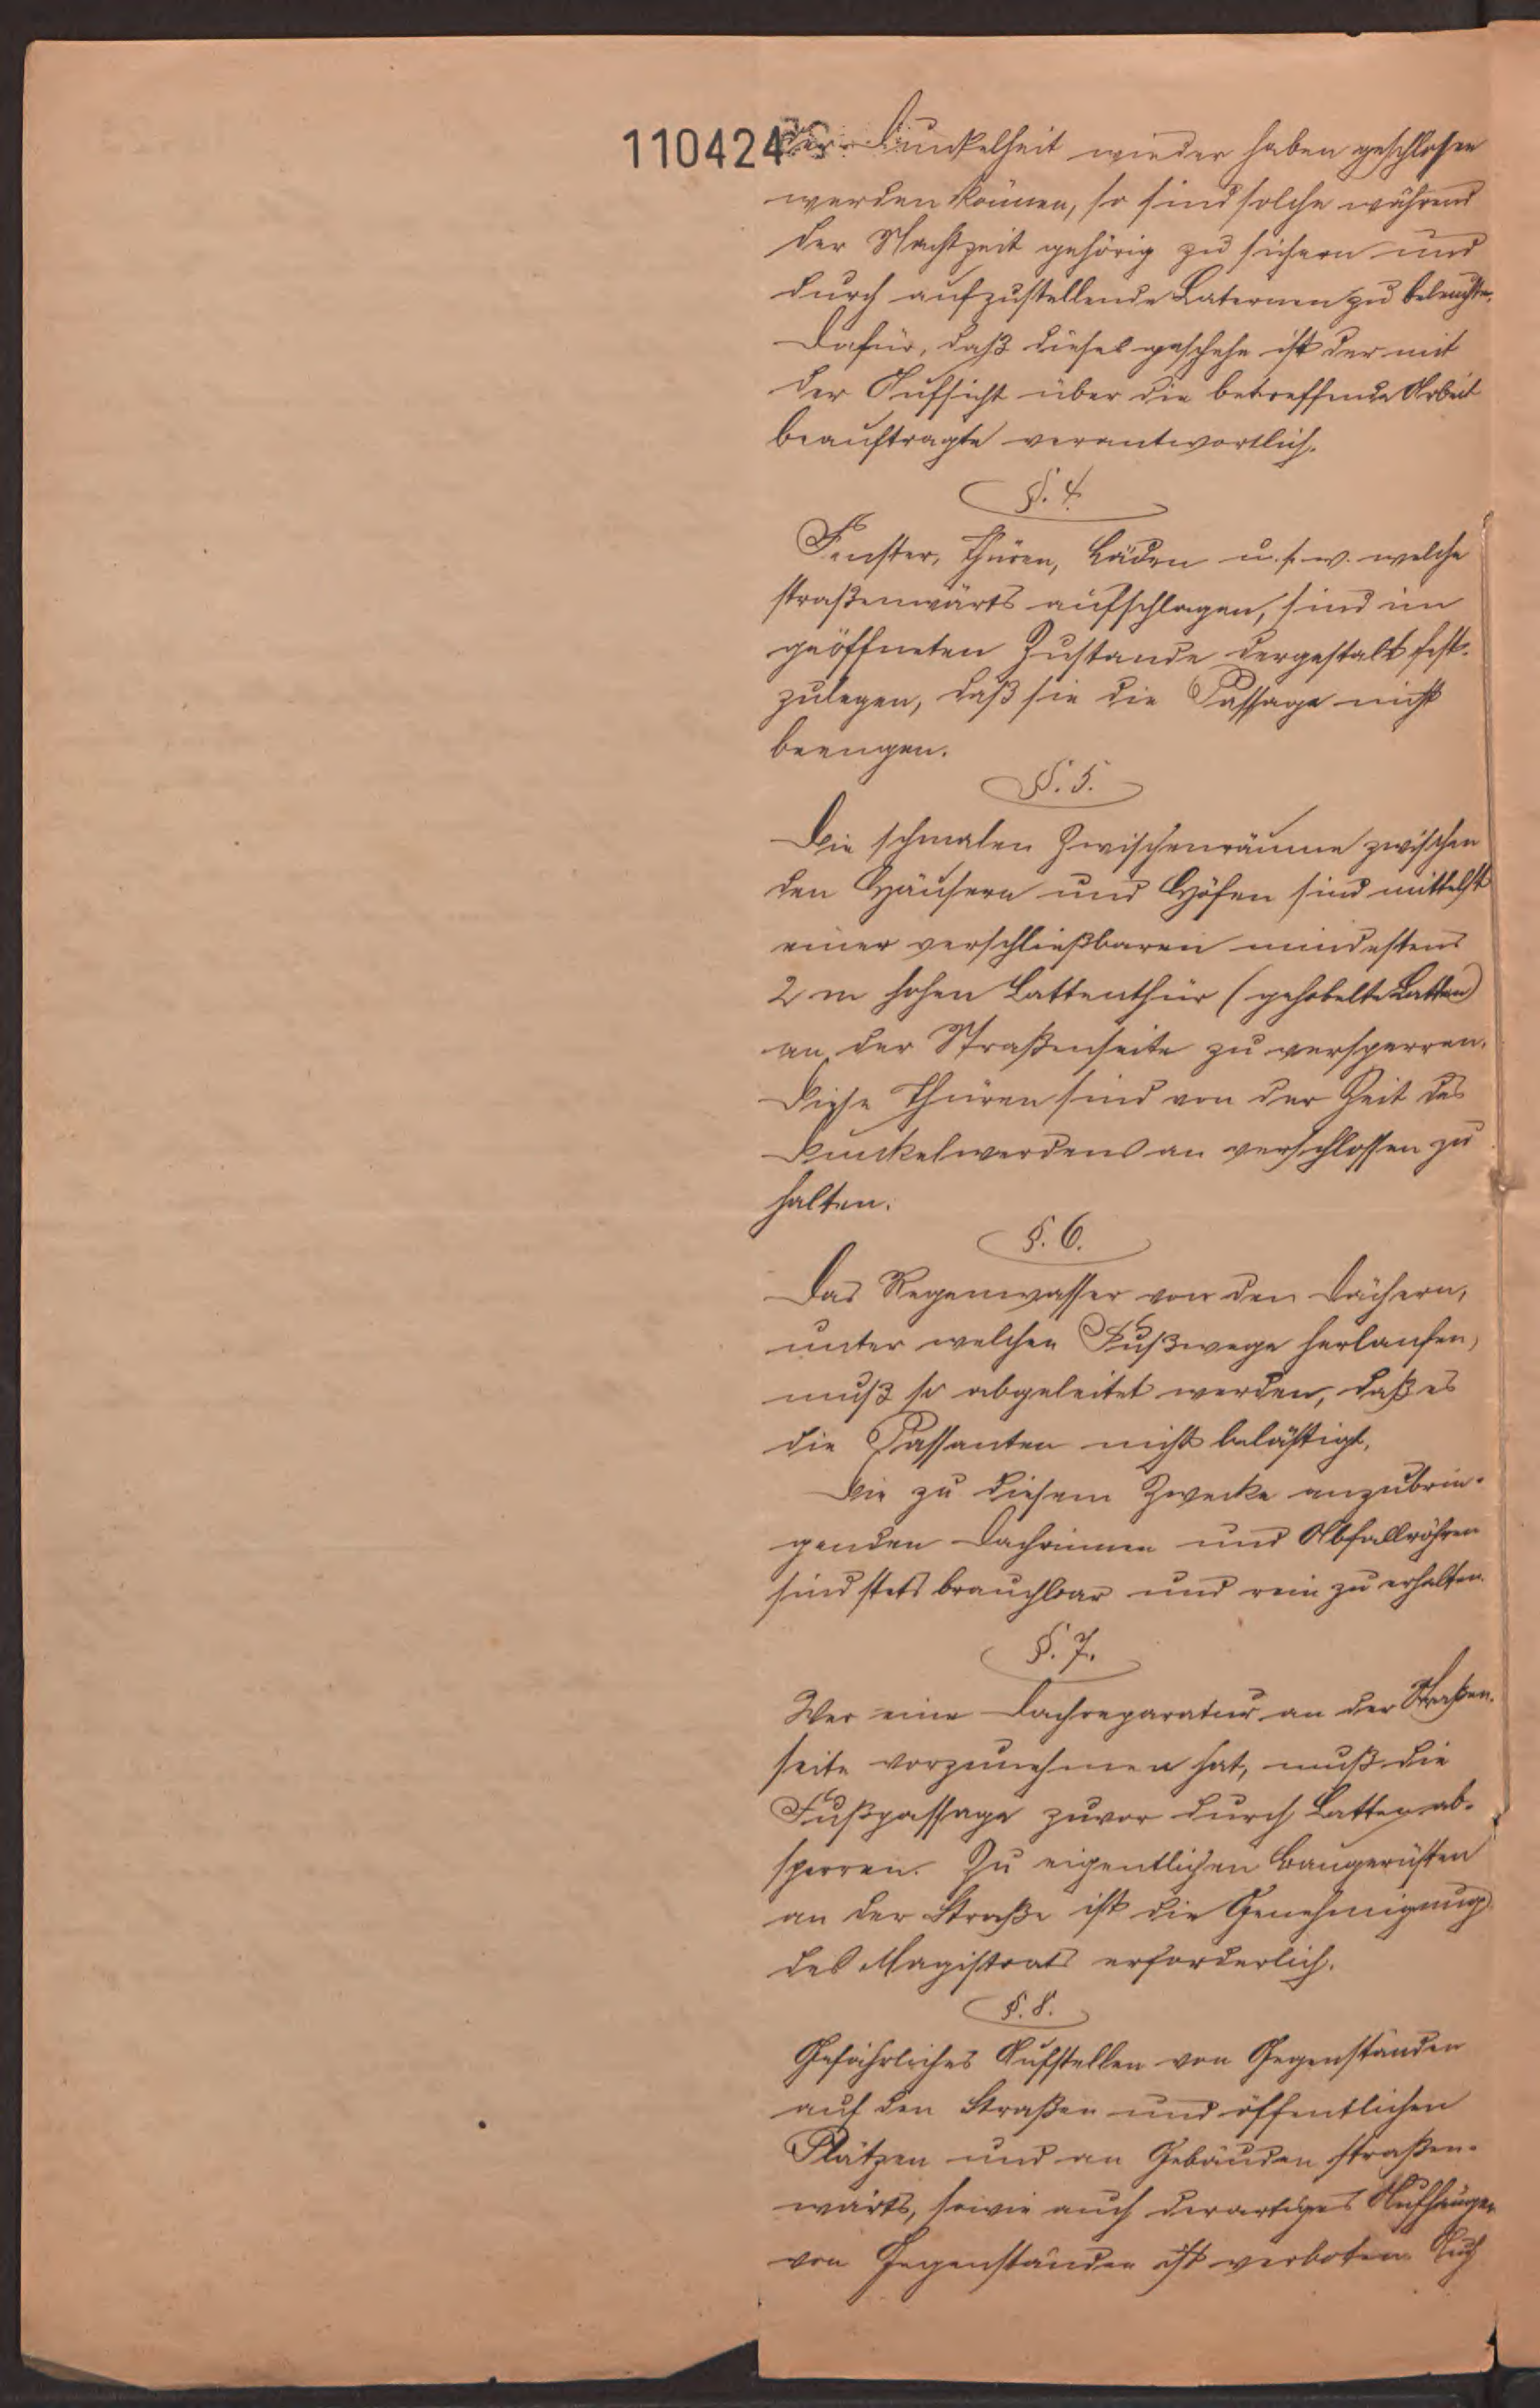 110424
der Dunkelheit wieder haben geschlossen
werden können, so sind solche während
der Nachtzeit gehörig zu sichern und
durch aufzustellende Laternen zu beleuchten.
Dafür, daß dieses geschehe ist der mit
der Aufsicht über die betreffende Arbeit
beauftragte verantwortlich.
§. 4.
Fenster, Thüren, Läden u. s. w. welche
straßenwärts aufschlagen, sind im
geöffneten Zustande dergestalt fest-
zulegen, daß sie die Passage nicht
beengen.
§. 5.
Die schmalen Zwischenräume zwischen
den Häusern und Höfen sind mittelst
einer verschließbaren mindestens
2 m hohen Lattenthür (gehobelte Latten)
an der Straßenseite zu versperren.
Diese Thüren sind von der Zeit des
Dunkelwerdens an verschlossen zu
halten.
§. 6.
Das Regenwasser von den Dächern,
unter welchen Fußwege herlaufen,
muß so abgeleitet werden, daß es
die Passanten nicht belästigt.
Die zu diesem Zwecke anzubrin-
genden Dachrinnen und Abfallröhren
sind stets brauchbar und rein zu erhalten.
§. 7.
Wer eine Dachreparatur an der Straßen-
seite vorzunehmen hat, muß die
Fußpassage zuvor durch Latten ab-
sperren. Zu eigentlichen Baugerüsten
an der Straße ist die Genehmigung
des Magistrats erforderlich.
§. 8.
Gefährliches Aufstellen von Gegenständen
auf den Straßen und öffentlichen
Plätzen und an Gebäuden straßen-
wärts, sowie auch derartiges Aufhängen
von Gegenständen ist verboten. Auch